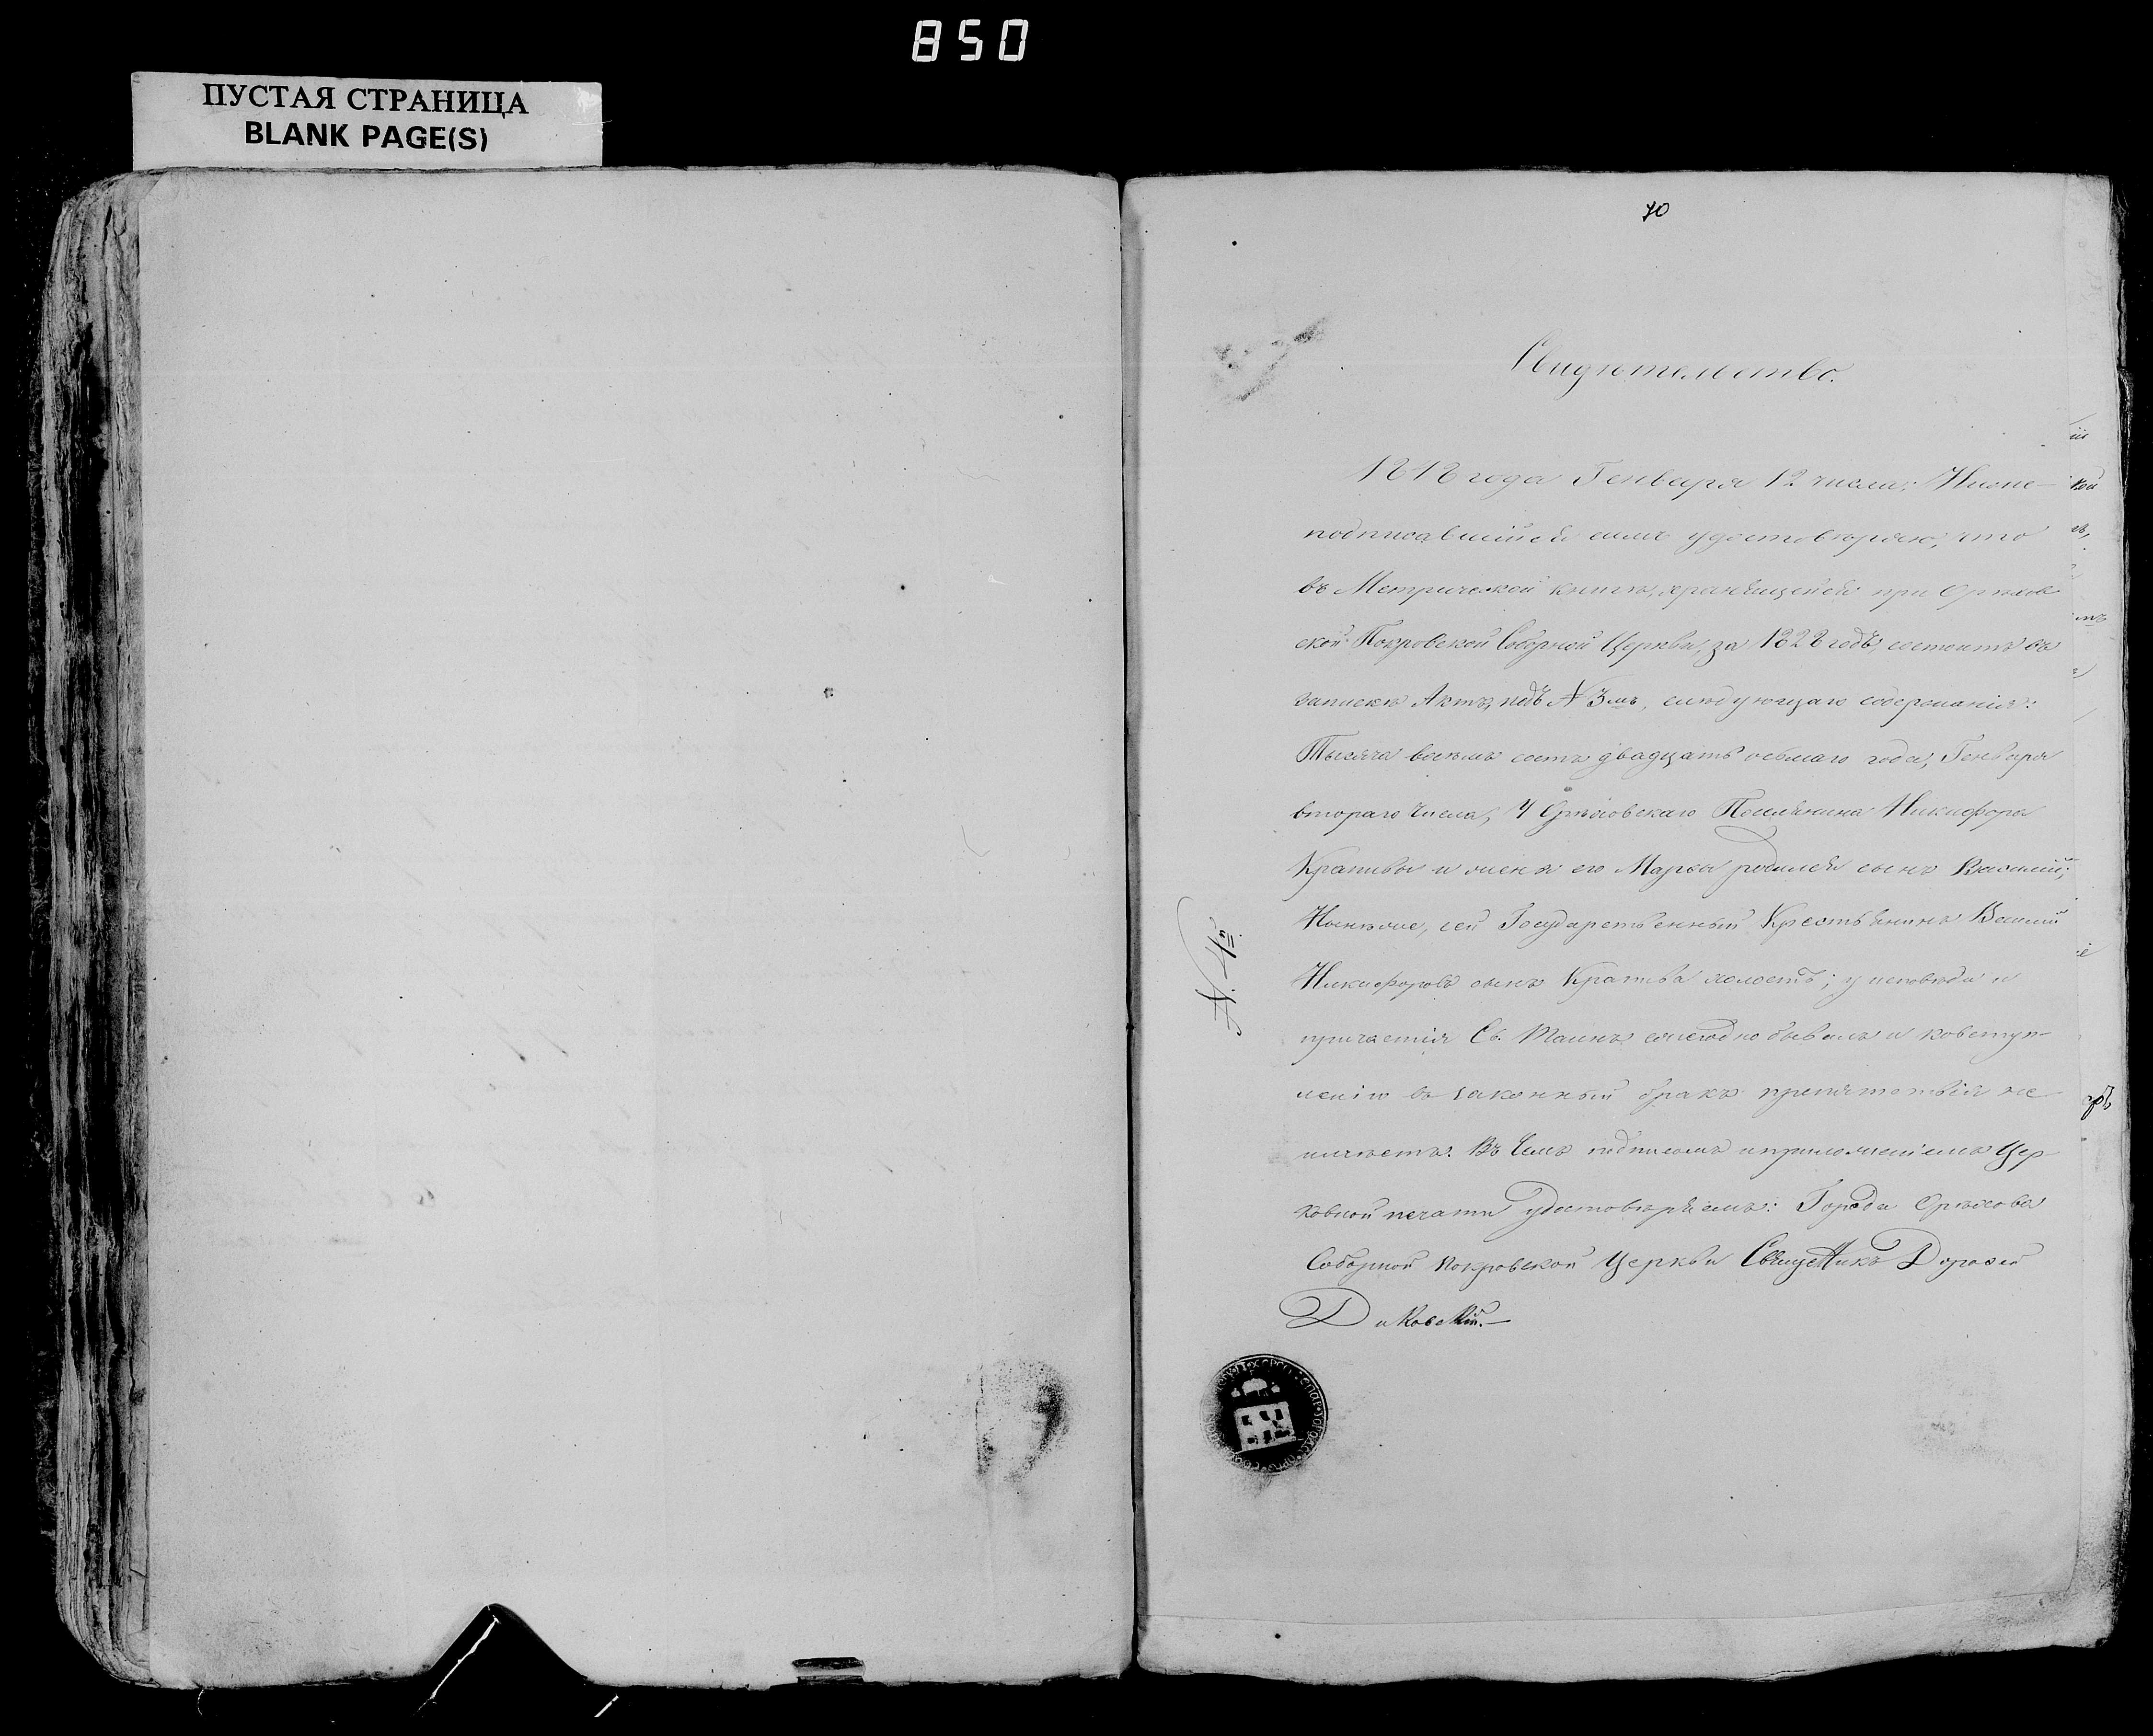 850
ПУСТАЯ СТРАНИЦА
BLANK PAGE(S)
70
Свидѣтельство.
года Генваря 12 числа: Ниже-
подписавшійся симъ удостовѣряю, что
въ Метрической книгѣ, хранящейся при Орѣхов
ской Покровской Соборной Церкви, за 1828 годъ, состоитъ въ
запискѣ Актъ, подъ № 3мъ, слѣдующаго содержанія:
Тысяча восемь сотъ двадцать осьмаго года, Генваря
втораго числа, У Орѣховскаго Поселянина Никифора
Крапивы и жены его Марѳы родился сынъ Василій;
Нынѣже, сей Государственный Крестьянинъ Василій
Никифоровъ сынъ Крапива холостъ; у исповѣди и
причастія Св. Таинъ ежегодно бывалъ и ковступ-
ленію въ законный бракъ препятствія не
имѣетъ. Въ чемъ подписомъ и приложеніемъ Цер
ковной печати удостовѣряемъ: Города Орѣхова
Соборной Покровской Церкви Священникъ Дороѳей
Диковскій.